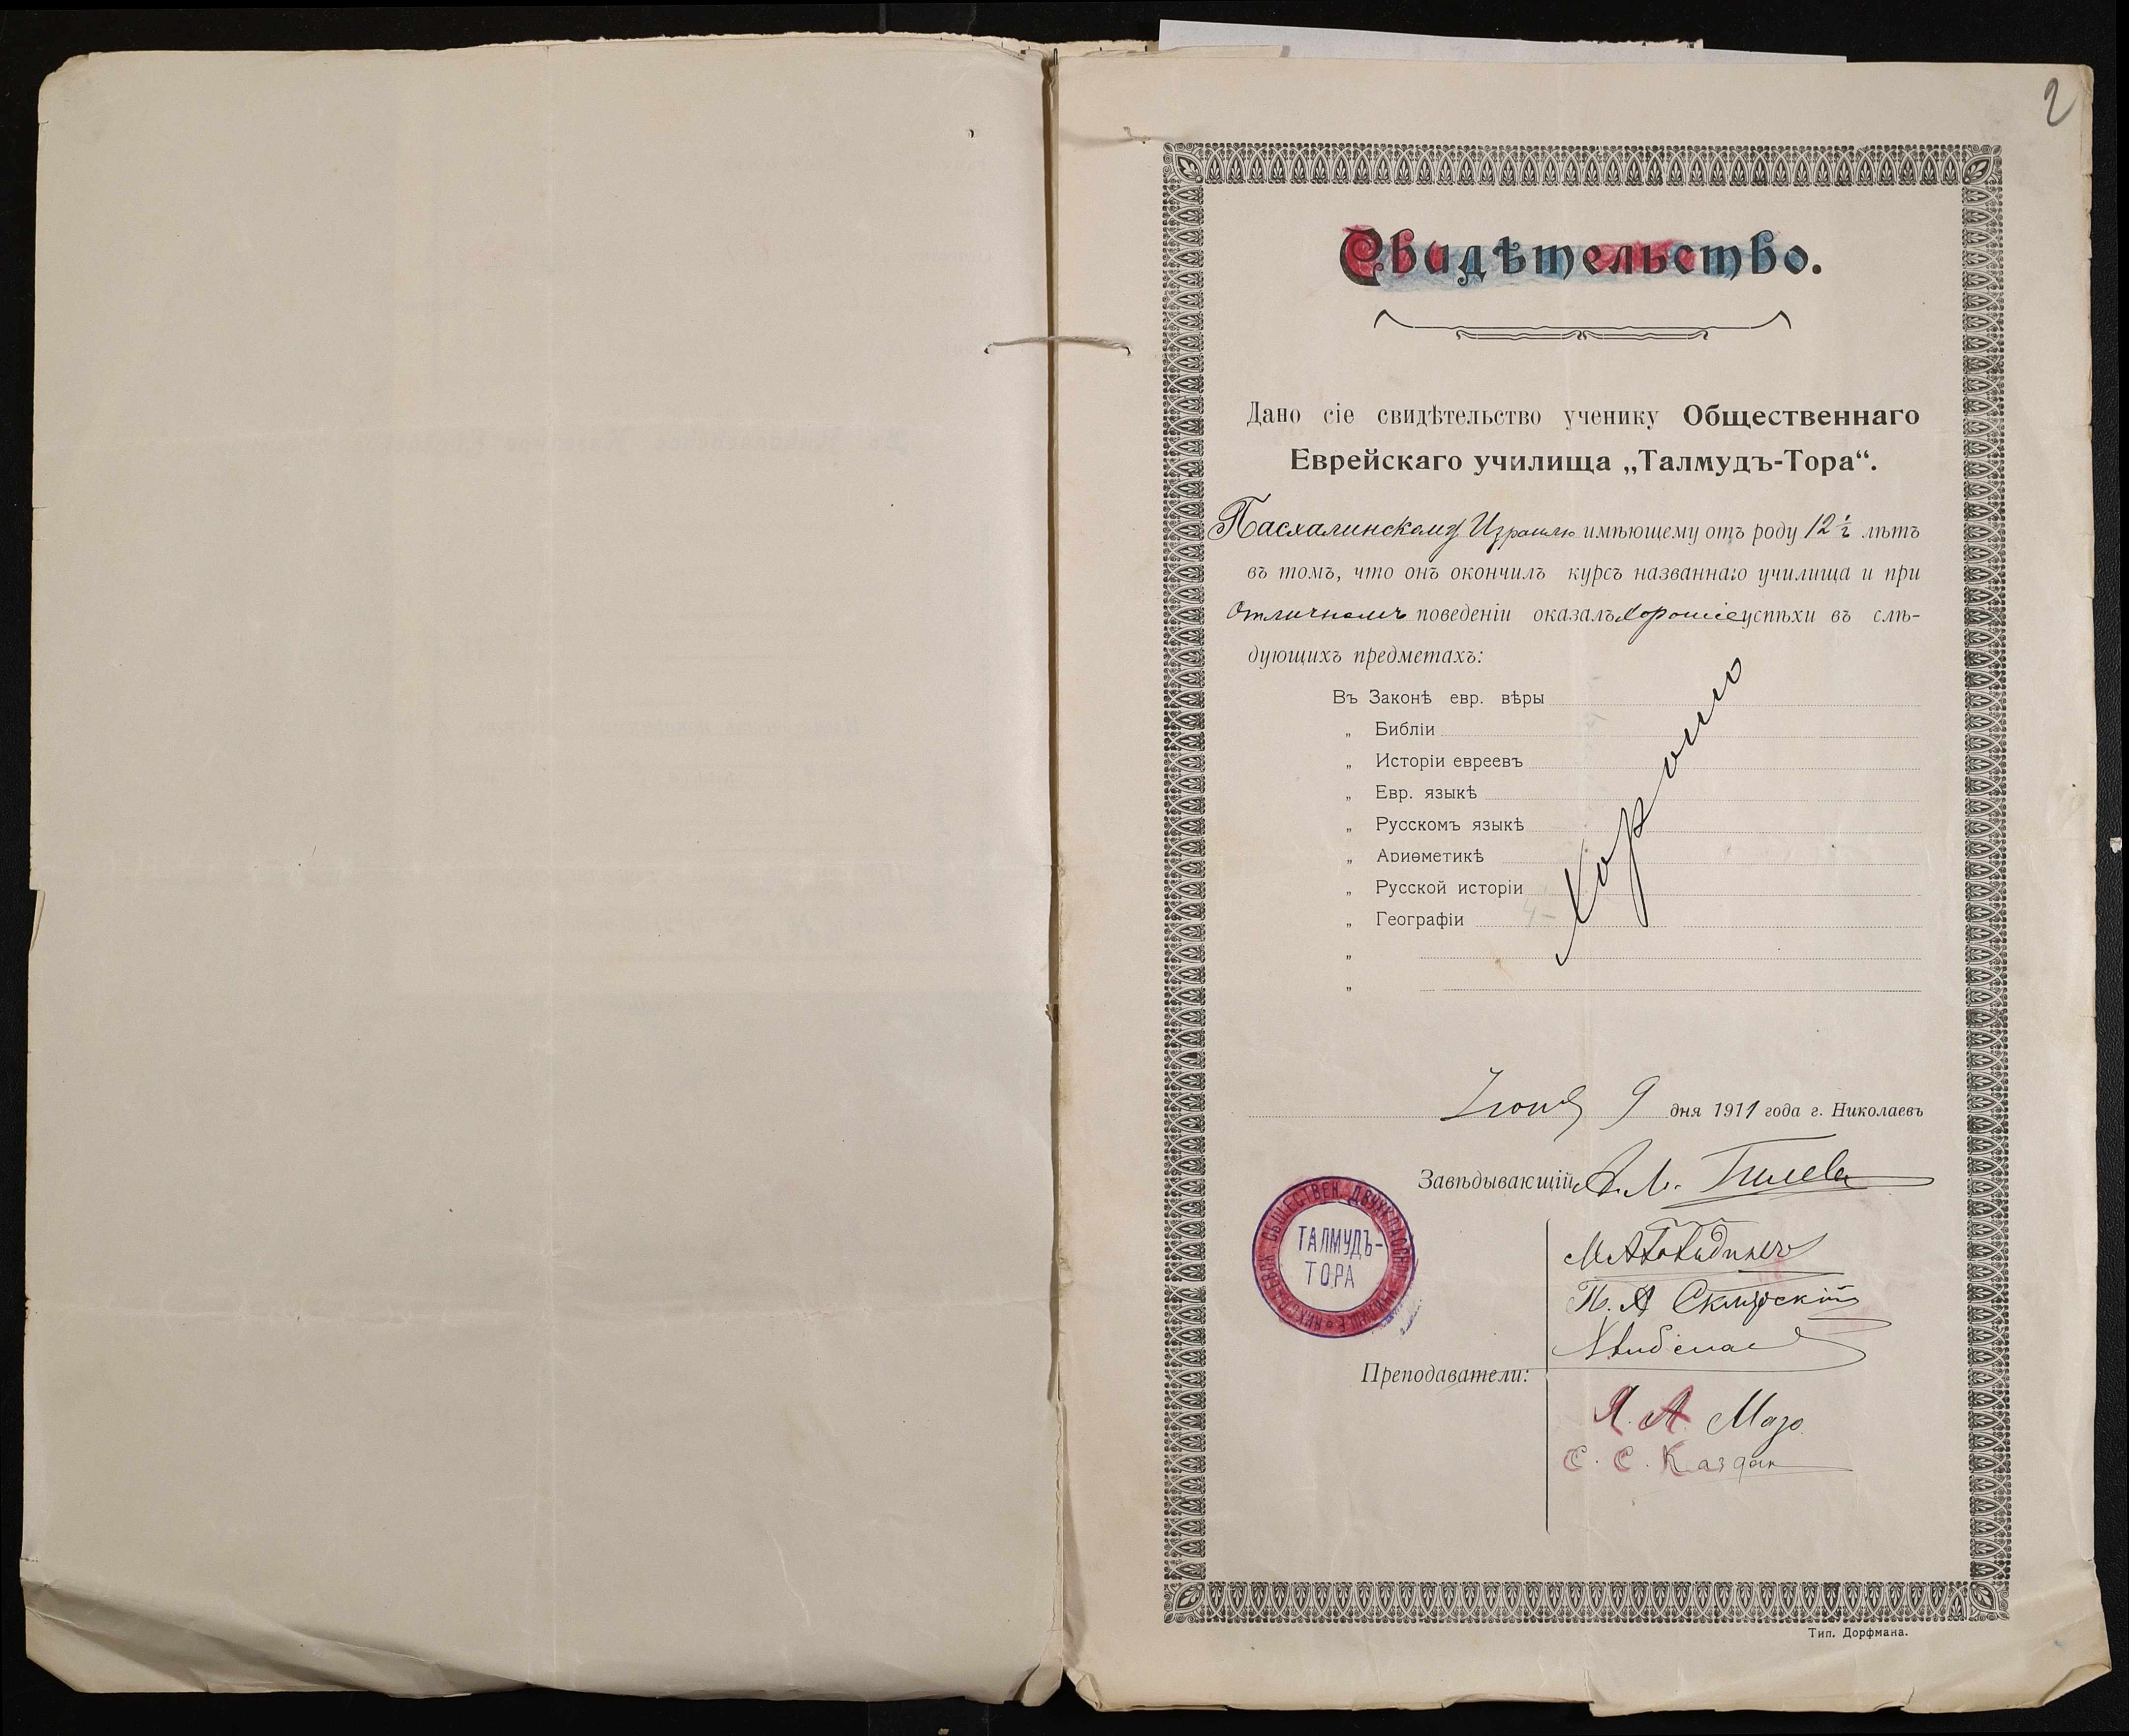 2
Свидѣтельство.
Дано сіе свидѣтельство ученику Общественнаго
Еврейскаго училища „Талмудъ-Тора“.
Пасхалинскому Израилю имѣющему отъ роду 12 ½ лѣтъ
въ томъ, что онъ окончилъ курсъ названнаго училища и при
Отличномъ поведеніи оказалъ хорошіе успѣхи въ слѣ-
дующихъ предметахъ:
Въ Законѣ евр. вѣры
„ Библіи
„ Исторіи евреевъ
„ Евр. языкѣ
„ Русскомъ языкѣ
„ Ариѳметикѣ
„ Русской исторіи
„ Географіи 4-
„
„
Хорошо
Іюня 9 дня 1911 года г. Николаевъ
Завѣдывающій А. М.
НИКОЛАЕВСК. ОБЩЕСТВЕН. ДВУХКЛАССН. УЧИЛИЩЕ
ТАЛМУДЪ-
ТОРА
М А
П. А Склярскій
Преподаватели:
Я. А. Мазо.
С. С. Каздан
Тип. Дорфмана.